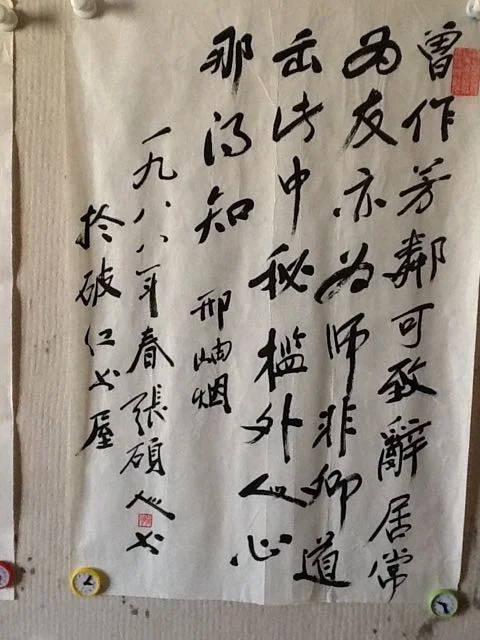 曾作芳鄰可致辭居常
为友亦为师非卿道
出此中秘槛外人心
那得知 邢岫烟
一九八八年春張碩人书
於破仁书屋